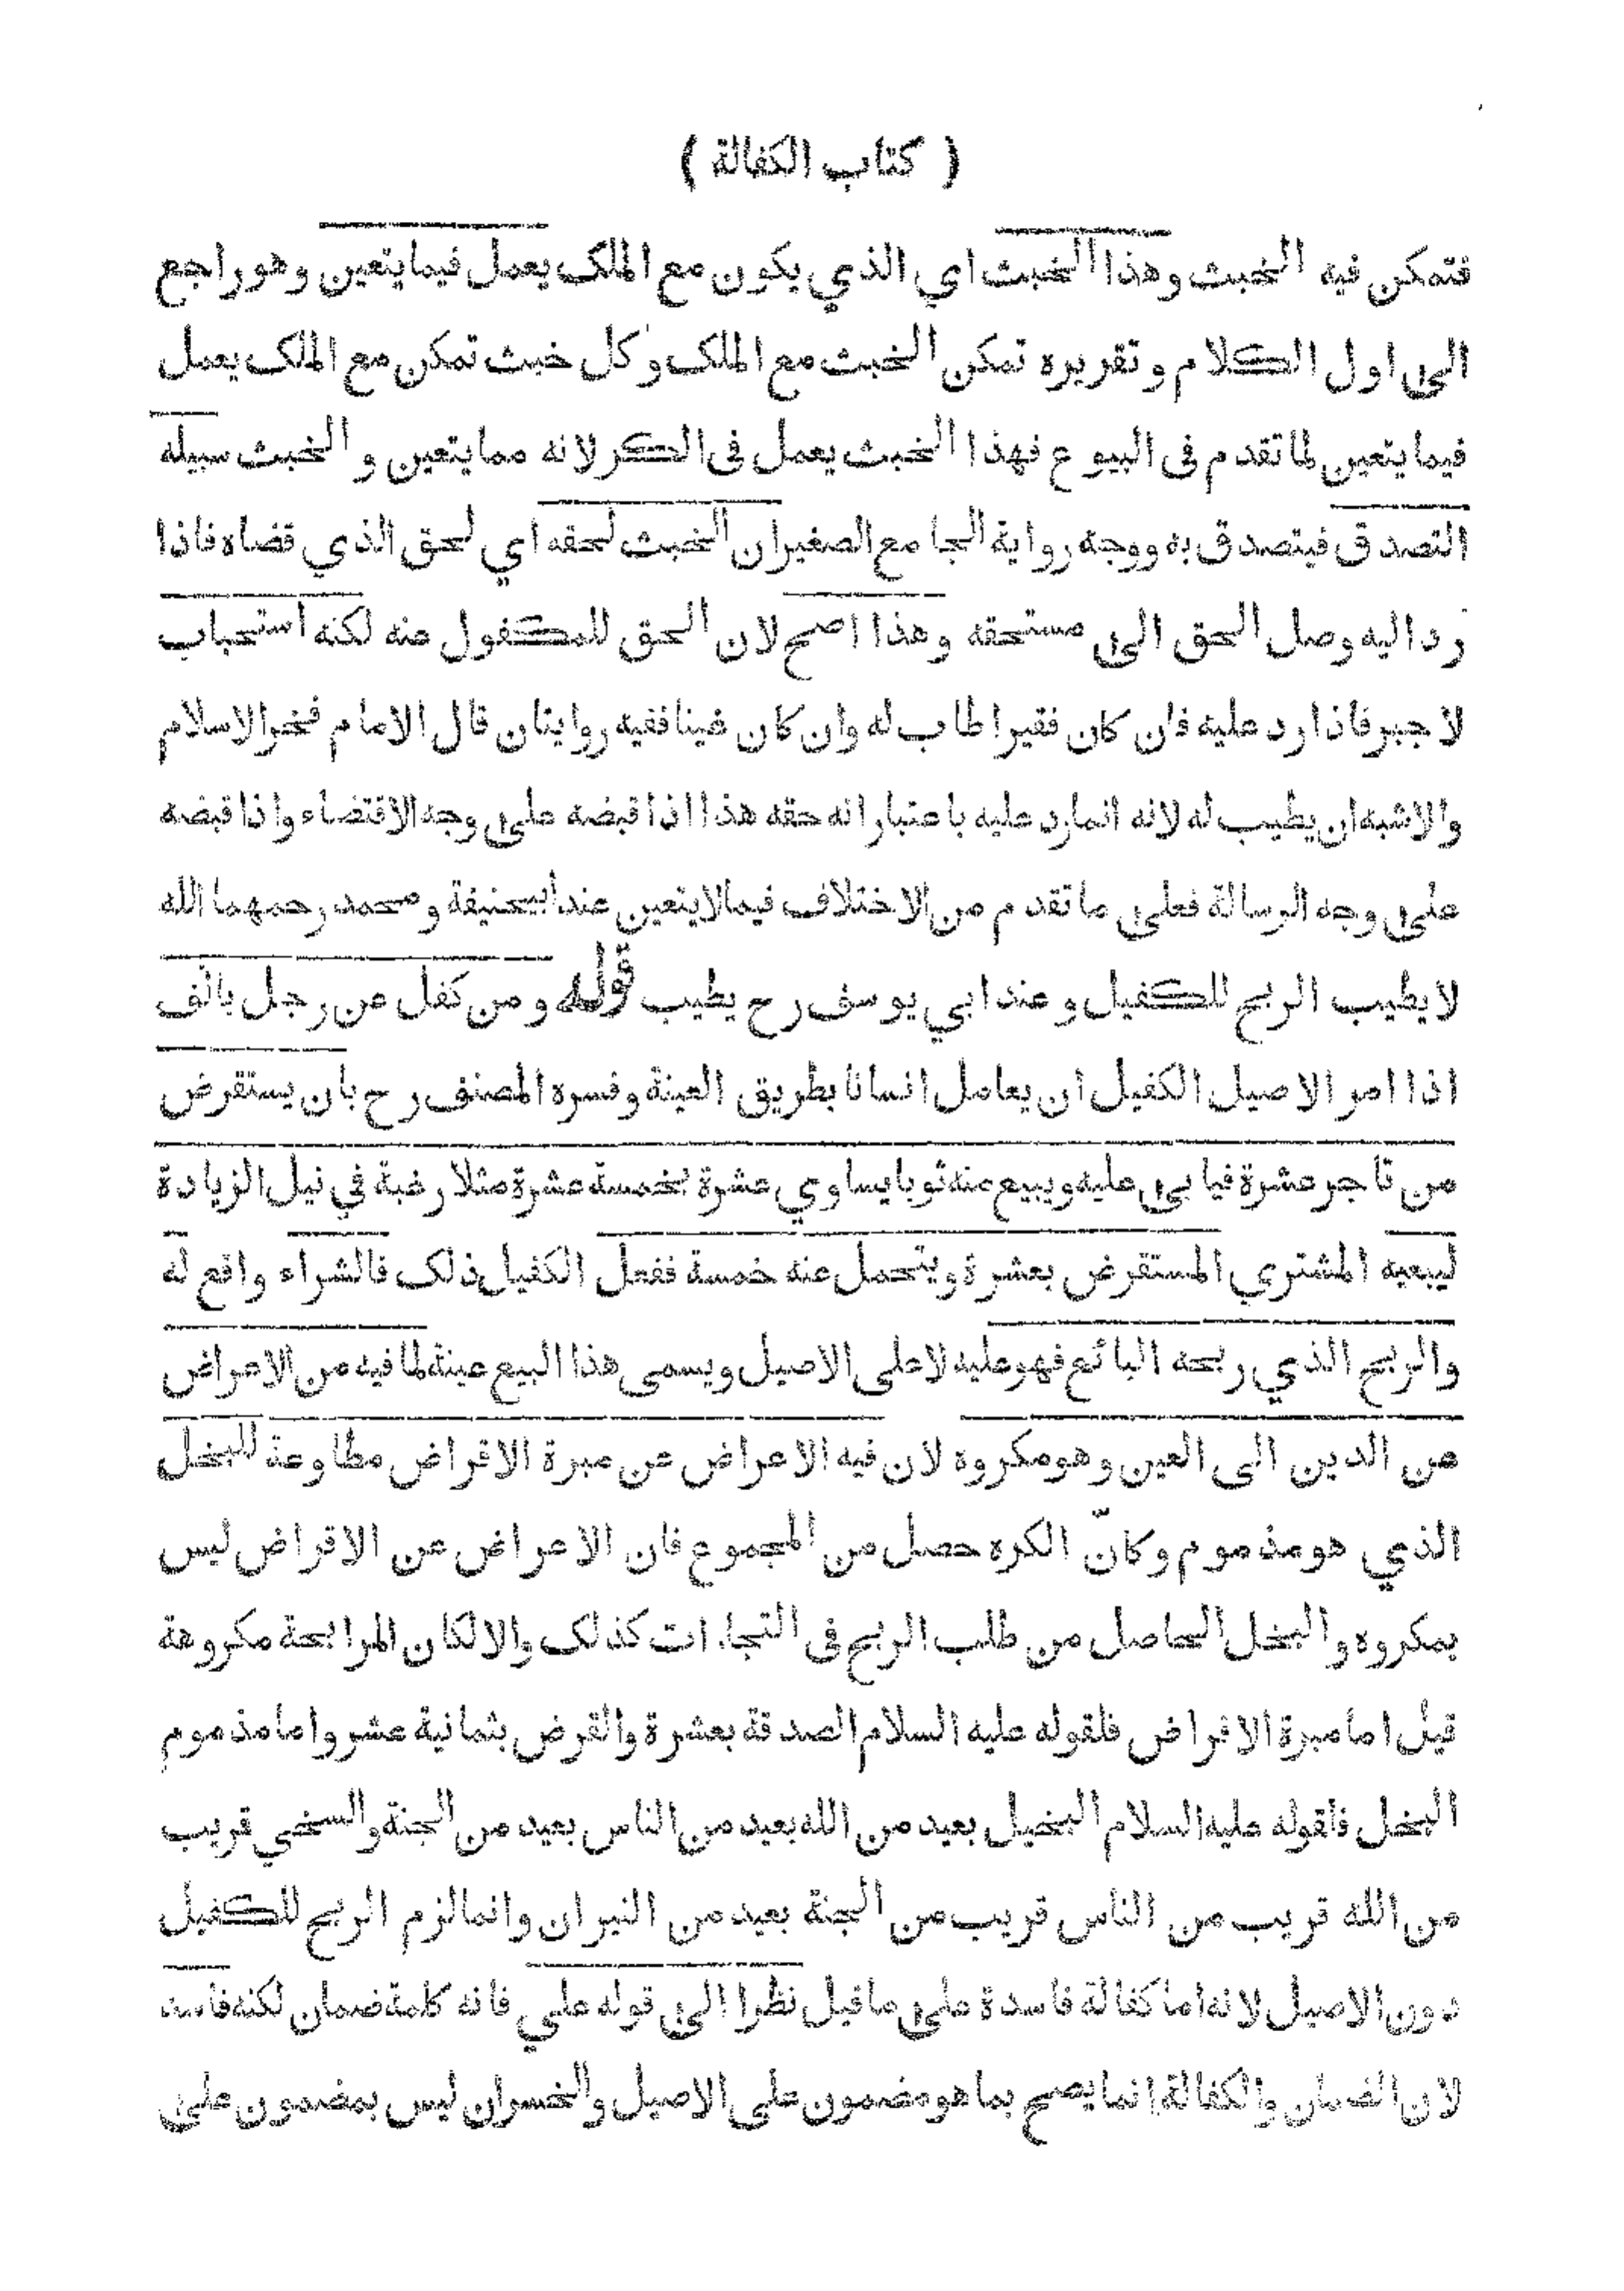 ( كتاب الكفالة )
فتمكن فيه الخبث وهذا الخبث اي الذي يكون مع الملك يعمل فيما يتعين وهو راجع
الى اول الكلام وتقريره تمكن الخبث مع الملك وكل خبث تمكن مع الملك يعمل
فيما يتعين لما تقدم فى البيوع فهذا الخبث يعمل فى الكر لانه مما يتعين والخبث سبيله
التصدق فيتصدق به ووجه رواية الجامع الصغير ان الخبث لحقه اي لحق الذي قضاه فاذا
رد اليه وصل الحق الى مستحقه وهذا اصح لان الحق للمكفول عنه لكنه استحباب
لا جبر فاذا رد عليه فان كان فقيرا طاب له وان كان غينا ففيه روايتان قال الامام فخر الاسلام
والاشبه ان يطيب له لانه انما رد عليه باعتبار انه حقه هذا اذا قبضه على وجه الاقتضاء واذا قبضه
على وجه الرسالة فعلى ما تقدم من الاختلاف فيما لا يتعين عند ابيحنيفة ومحمد رحمهما الله
لا يطيب الربح للكفيل وعند ابي يوسف رح يطيب قوله ومن كفل عن رجل بالف
اذا امر الاصيل الكفيل ان يعامل انسانا بطريق العينة وفسره المصنف رح بان يستقرض
من تاجر عشرة فيابى عليه ويبيع عنه ثوبا يساوي عشرة بخمسة عشرة مثلا رغبة في نيل الزيادة
ليبعيه المشتري المستقرض بعشرة ويتحمل عنه خمسة ففعل الكفيل ذلك فالشراء واقع له
والربح الذي ربحه البائع فهو عليه لا على الاصيل ويسمى هذا البيع عينة لما فيه من الاعراض
عن الدين الى العين وهو مكروه لان فيه الاعراض عن مبرة الاقراض مطاوعة للبخل
الذي هو مذموم وكانّ الكره حصل من المجموع فان الاعراض عن الاقراض ليس
بمكروه والبخل الحاصل من طلب الربح فى التجارات كذلك والا لكان المرابحة مكروهة
قيل اما مبرة الاقراض فلقوله عليه السلام الصدقة بعشرة والقرض بثمانية عشر واما مذموم
البخل فلقوله عليه السلام البخيل بعيد من الله بعيد من الناس بعيد من الجنة والسخي قريب
من الله قريب من الناس قريب من الجنة بعيد من النيران وانما لزم الربح للكفيل
دون الاصيل لانه اما كفالة فاسدة على ما قيل نظرا الى قوله علي فانه كلمة ضمان لكنه فاسد
لان الضمان والكفالة انما يصح بما هو مضمون على الاصيل والخسران ليس بمضمون على